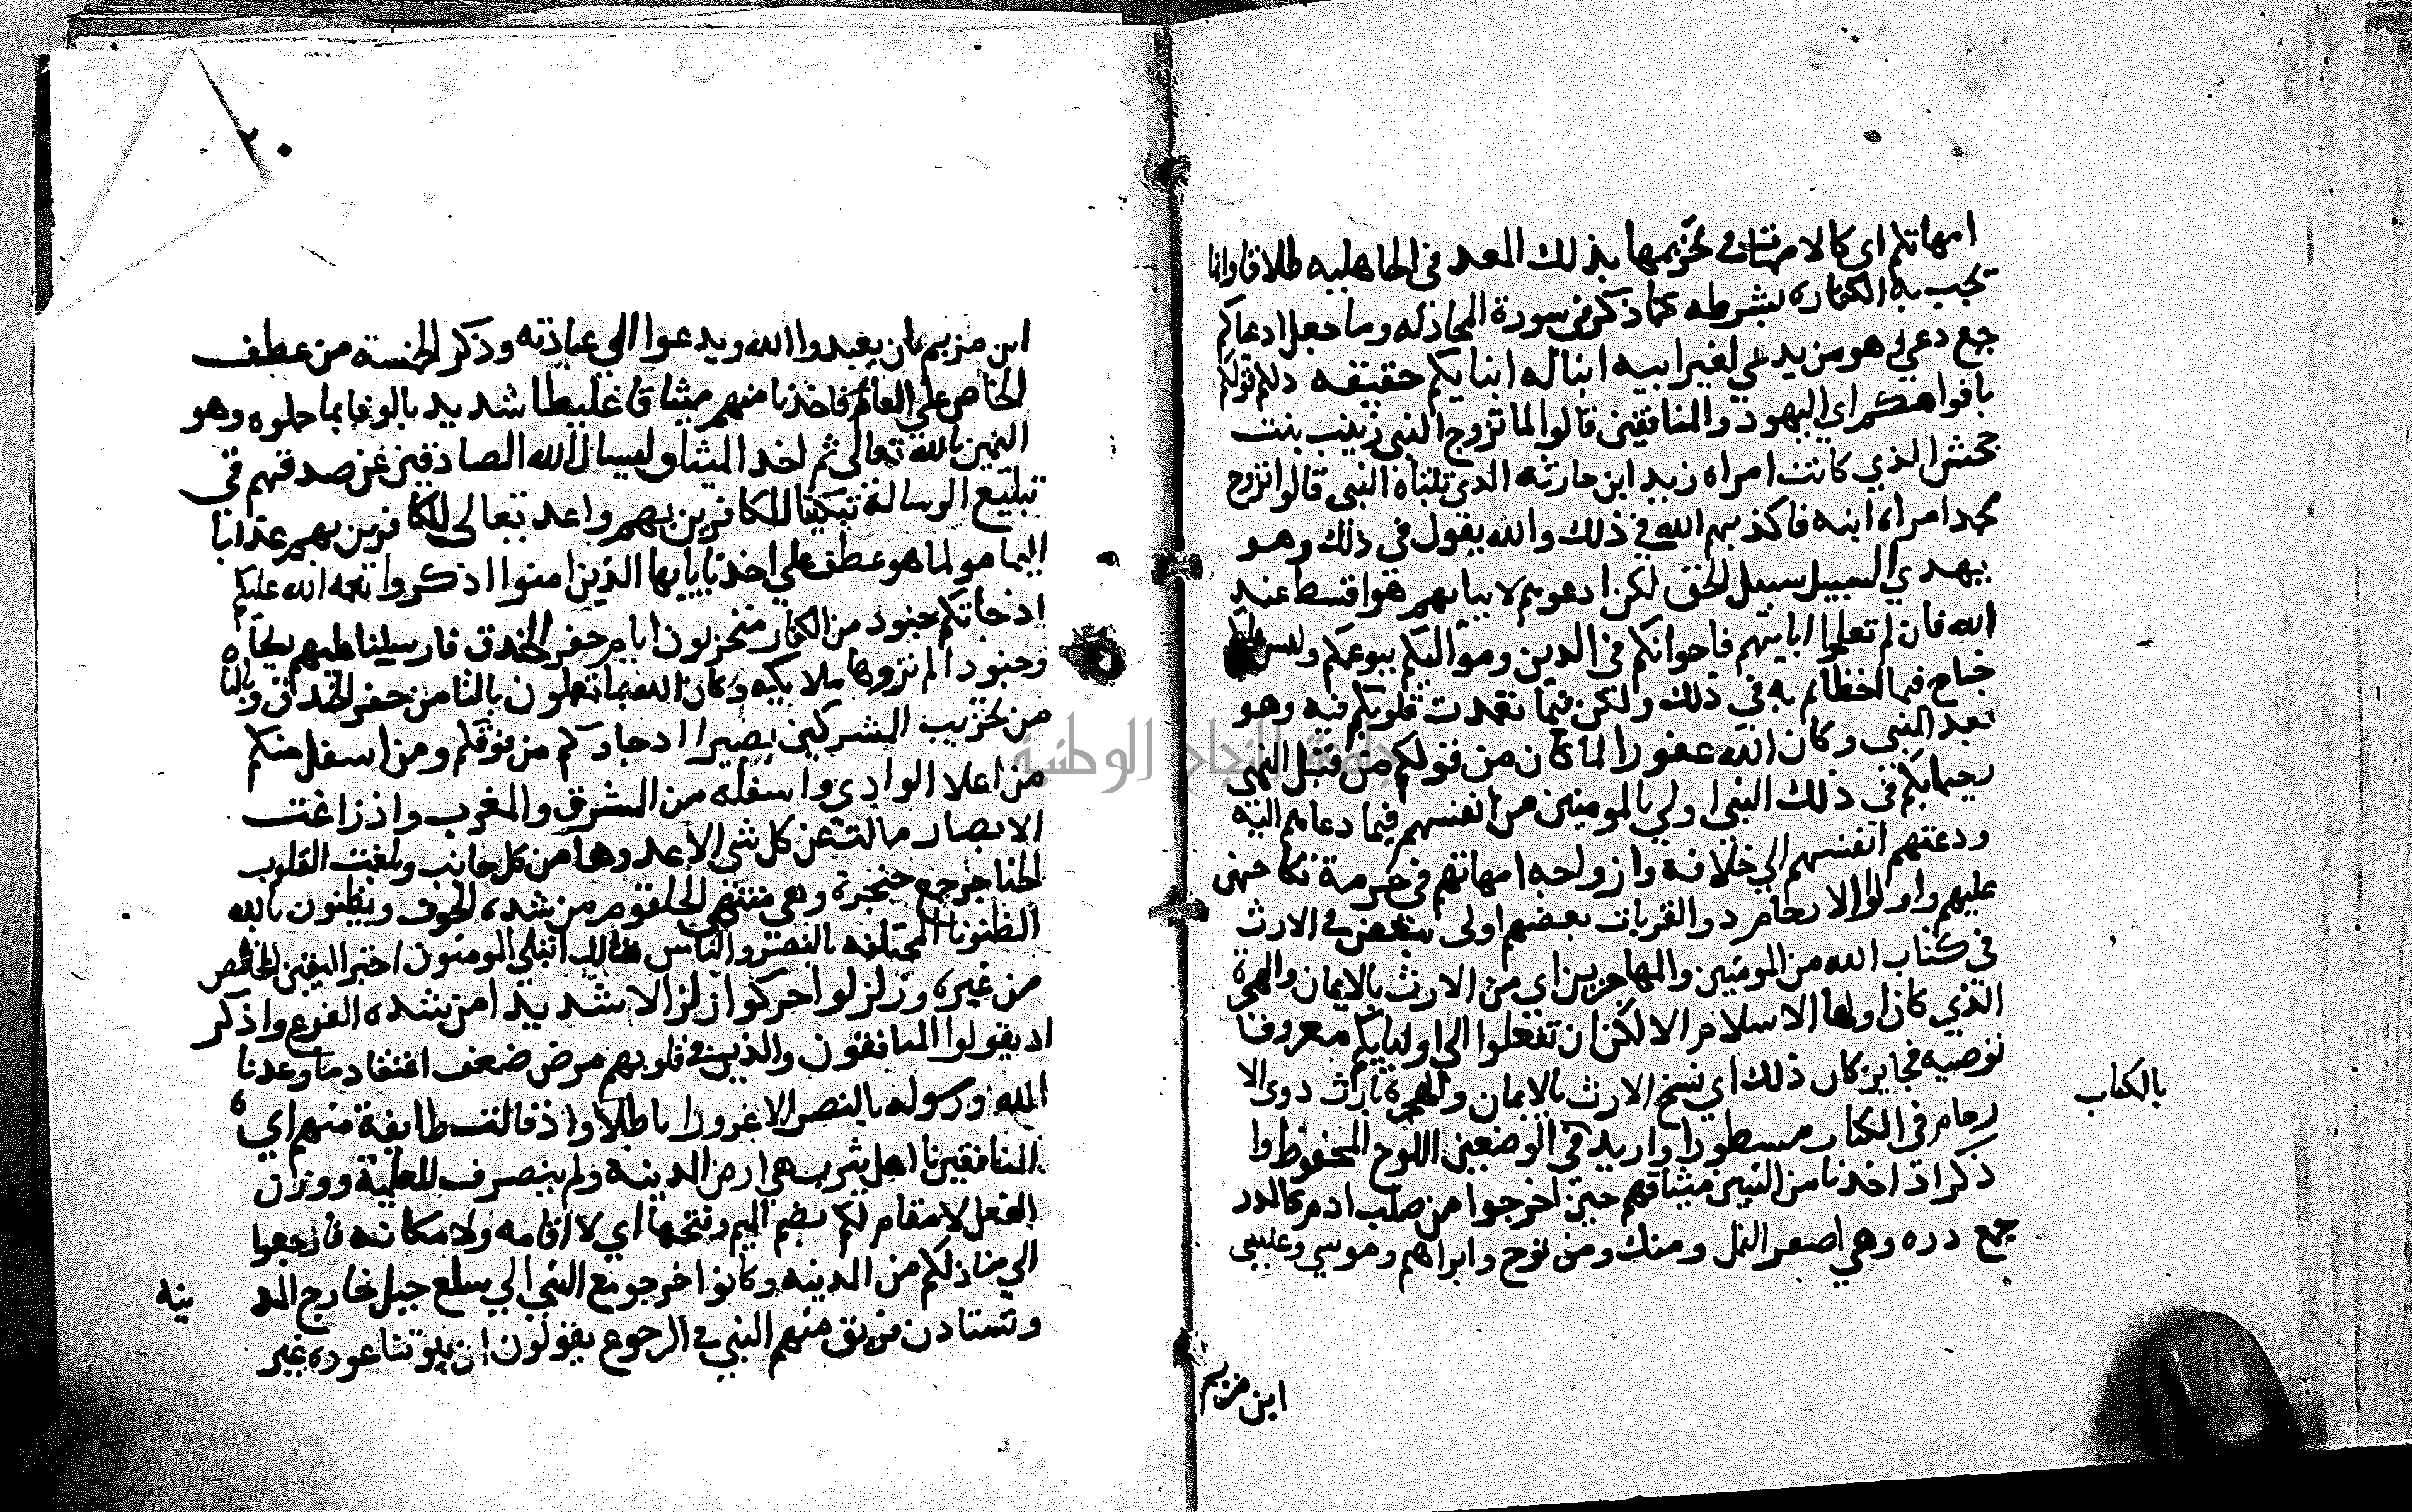 امهاتكم اي كالامهات في تحريمها بذلك المعد في الجاهليه طلاقا وانما
تجب به الكفاره بشرطه كما ذكر في سورة المجادله وما جعل ادعياكم
جمع دعي هو من يدعي لغير ابيه ابنا له ابنايكم حقيقه ذلكم قولكم
بافواهكم اي اليهود والمنافقين قالوا لما تزوج النبي زينب بنت
جحش الذي كانت امراه زيد ابن حارثه الذي تبناه النبي قالوا تزوج
محمد امراه ابنه فاكذبهم الله في ذلك والله يقول في ذلك وهو
يهدي السبيل سبيل الحق لكن ادعوهم لابايهم هو اقسط عند
الله فان لم تعلموا اباهم فاخوانكم في الدين ومواليكم بنوعمكم وليس عليكم
جناح فيما اخطاتم به في ذلك ولكن فيما تعمدت قلوبكم فيه وهو
بعد النبي وكان الله غفورا لما كان من قولكم من قبل النهي
رحيما بكم في ذلك النبي اولي بالمومنين من انفسهم فيما دعاهم اليه
ودعتهم انفسهم الي خلافه وازواجه امهاتهم في حرمة نكاحهن
عليهم واولوا الارحام ذوالقربات بعضهم اولى ببعض في الارث
في كتاب الله من المومنين والمهاجرين اي من الارث بالايمان والهجرة
الذي كان اول الاسلام الا لكن ان تفعلوا الي اوليايكم معروفا
توصيه فجايز كان ذلك اي نسخ الارث بالايمان والهجرة بارث ذوى الا
رحام في الكتاب مسطورا واريد في الوضعين اللوح المحفوظ وا
بالكتاب
ذكر اذ اخذنا من النبين ميثاقهم حين اخرجوا من صلب ادم كالذر
جمع دره وهي اصغر النمل ومنك ومن نوح وابراهم وموسي وعيسي
ابن مريم
٢٠
ابن مريم بان يعبدوا الله ويدعوا الي عبادته وذكر الخمسته من عطف
الخاص علي العام فاخذنا منهم ميثاقا غليظا شديد بالوفا بما حملوه وهو
اليمين بالله تعالى ثم اخد الميثاق ليسال الله الصادقين عن صدقهم في
تبليغ الرسالة تبكيتا للكافرين بهم واعد تعالى للكافرين بهم عذابا
اليما مولما هو عطف علي اخذنا يايها الذين امنوا اذكروا نعمه الله عليكم
اذ جاتكم جنود من الكفار متحزبون ايام حفر الخندق فارسلنا عليهم ريحا
وجنودا لم تروها ملايكه وكان الله بما تعملون بالتا من حفر الخندق وباليا
من تحزيب المشركين بصيرا اذ جاوكم من فوقكم ومن اسفل منكم
من اعلا الوادي واسفله من المشرق والمغرب واذ زاغت
الابصار مالت عن كل شي الا عدوها من كل جانب وبلغت القلوب
الحناجر جمع حنجرة وهي منتهي الحلقوم من شده الخوف ويظنون بالله
الظنونا المختلفه بالنصر والناس هنالك ابتلي المومنون اختبر اليقين الخالص
من غيره وزلزلوا حركوا زلزالا شديدا من شده الفزع واذكر
اذ يقولوا المنافقون والذين في قلوبهم مرض ضعف اعتقاد ما وعدنا
الله ورسوله بالنصر الا غرورا باطلا واذ قالت طايفة منهم اي
المنافقين يا اهل يثرب هي ارض المدينه ولم ينصرف للعلمية ووزن
الفعل لا مقام لكم بضم الميم وفتحها اي لا اقامه ولا مكانه فارجعوا
الي منازلكم من المدينه وكانوا اخرجو مع النبي الي سلع جبل خارج المد
ينه
ويستاذن فريق منهم النبي في الرجوع يقولون ان بيوتنا عوره غير
جامعة النجاح الوطنية